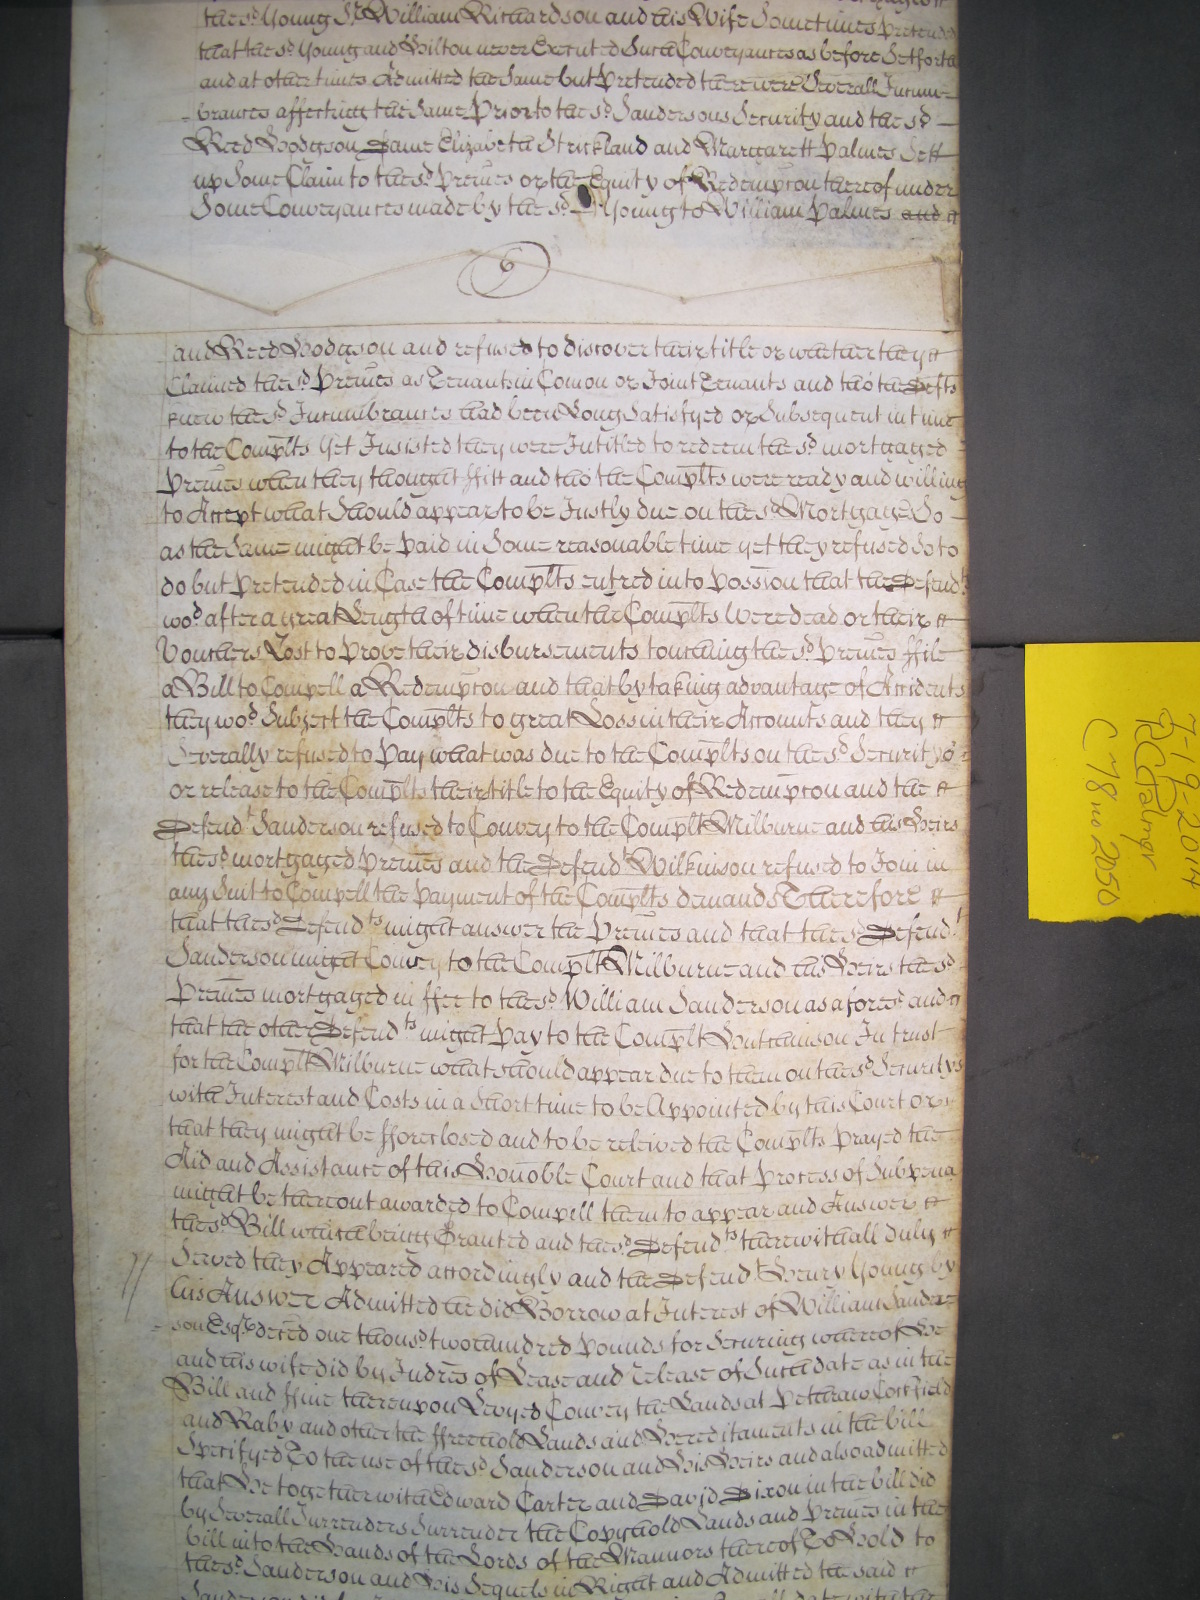 the sd. Young Sr. William Richardson and his Wife Sometimes pretended
that the sd. Young and Hilton never Executed Such Conveyances as before Setforth
and at other times Admitted the Same but Pretended there were Severall Incum-
-brances affecting the Same Prior to the sd. Sandersons Security and the sd.
Reed Hodgson Dame Elizabeth Strickland and Margarett Palmes Sett
up Some Claim to the sd. Premes or the Equity of Redempron thereof under
Some Conveyances made by the sd. Young to William Palmes and
6
and Reed Hodgson and refused to discover their title or whether they
Claimed the sd. Premes as Tenants in Comon or Joint Tenants and tho' the Defts
knew the sd. Incumbrances had been Long Satisfyed or Subsequent in time
to the Complts yet Insisted they were Intitled to redeem the sd. mortgaged
Premes when they thought ffitt and tho' the Complts were ready and willing
to Accept what Should appear to be Justly due on the sd. Mortgage So
as the Same might be Paid in Some reasonable time yet they refused So to
do but Pretended in Case the Complts entred into Possion that the Defendts
wod. after a great Length of time when the Complts Were dead or their
Vouchers Lost to Prove their disbursements touching the sd. Premes ffile
a Bill to Compell a Redempron and that by taking advantage of Accidents
they wod. Subject the Complts to great Loss in their Accounts and they
Severally refused to Pay what was due to the Complts on the sd. Securitys
or release to the Complts their title to the Equity of Redempron and the
Defendt. Sanderson refused to Convey to the Complt Milburne and his Heirs
the sd. mortgaged Premes and the Defendt. Wilkinson refused to Join in
any Suit to Compell the Payment of the Complts demands Therefore
that the sd. Defendts. might answer the Premes and that the sd. Defendt.
Sanderson might Convey to the Complt Milburne and his Heirs the sd.
Premes mortgaged in ffee to the sd. William Sanderson as aforesd. and
that the other Defendts. might Pay to the Complt Southinson In trust
for the Complt Milburne what should appear due to them on the sd. Securitys
with Interest and Costs in a Short time to be Appointed by this Court or
that they might be fforeclosed and to be releived the Complts Prayed the
Aid and Assistance of this Honoble Court and that Process of Subpena
might be thereout awarded to Compell them to appear and Answer
the sd. Bill which being Granted and the sd. Defendts. therewithall duly
Served they Appeared accordingly and the Defendt. Henry Young by
his Answer Admitted he did Borrow at Interest of William Sander-
-son Esqr. deced one thousd. two hundred Pounds for Securing whereof He
and his wife did by Indres of Lease and release of Such date as in the
Bill and ffine thereupon Levyed Convey the Lands at Pethraw Cockfield
and Raby and other the ffreehold Lands and Hereditaments in the bill
Specifyed To the use of the sd. Sanderson and His Heirs and also admitted
that He together with Edward Carter and David Dixon in the bill did
by Severall Surrenders Surrender the Copyhold Lands and Premes in the
bill into the Hands of the Lords of the Mannors thereof To Hold to
the sd. Sanderson and His Sequels in Right and Admitted the said
7-19-2014
RCPalmer
C 78 no 2050